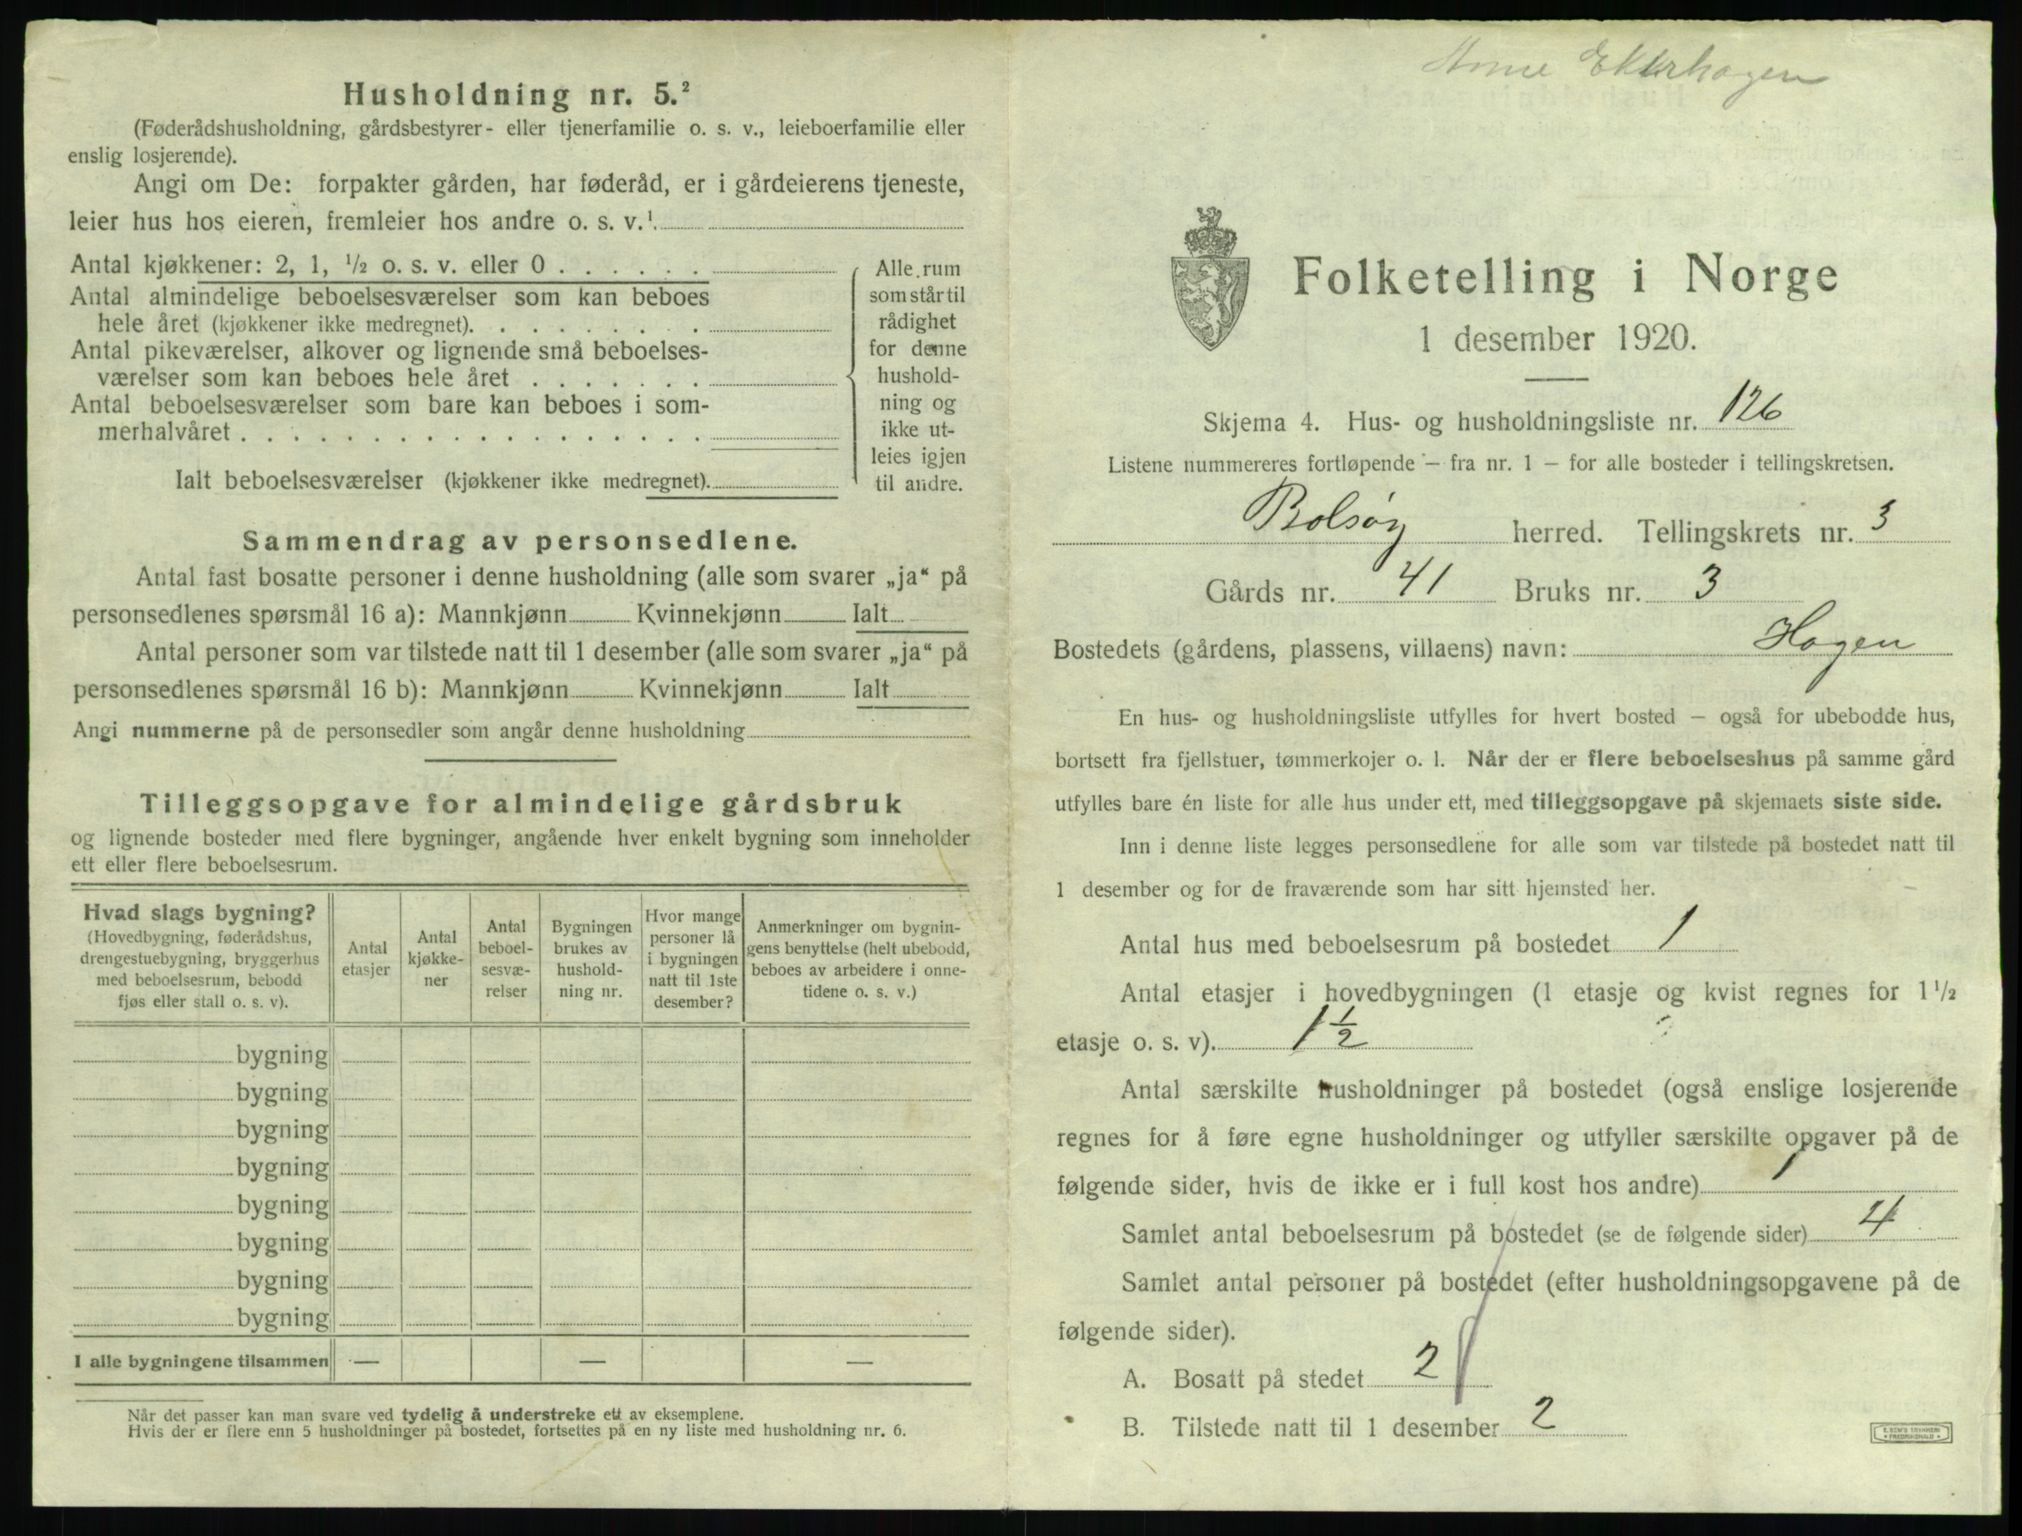 Husholdning nr. 5.²
(Føderådshusholdning, gårdsbestyrer- eller tjenerfamilie o. s. v., leieboerfamilie eller
enslig losjerende).
Angi om De: forpakter gården, har føderåd, er i gårdeierens tjeneste,
leier hus hos eieren, fremleier hos andre o. s. v.¹
Antal kjøkkener: 2, 1, ½ o. s. v. eller 0 . . . . . .
Antal almindelige beboelsesværelser som kan beboes
hele året (kjøkkener ikke medregnet). . . . . . . . .
Antal pikeværelser, alkover og lignende små beboelses-
værelser som kan beboes hele året . . . . . . .
Antal beboelsesværelser som bare kan beboes i som-
merhalvåret . . . . . . . . . . . . . . . . . .
Ialt beboelsesværelser (kjøkkener ikke medregnet).
Alle rum
som står til
rådighet
for denne
hushold-
ning og
ikke ut-
leies igjen
til andre.
Sammendrag av personsedlene.
Antal fast bosatte personer i denne husholdning (alle som svarer „ja“ på
personsedlenes spørsmål 16 a): Mannkjønn Kvinnekjønn Ialt
Antal personer som var tilstede natt til 1 desember (alle som svarer „ja“ på
personsedlenes spørsmål 16 b): Mannkjønn Kvinnekjønn Ialt
Angi nummerne på de personsedler som angår denne husholdning
Tilleggsopgave for almindelige gårdsbruk
og lignende bosteder med flere bygninger, angående hver enkelt bygning som inneholder
ett eller flere beboelsesrum.
Hvad slags bygning?
(Hovedbygning, føderådshus,
drengestuebygning, bryggerhus
med beboelsesrum, bebodd
fjøs eller stall o. s. v).
Antal
etasjer
Antal
kjøkke-
ner
Antal
beboel-
sesvæ-
relser
Bygningen
brukes av
hushold-
ning nr.
Hvor mange
personer lå
i bygningen
natt til 1ste
desember?
Anmerkninger om bygnin-
gens benyttelse (helt ubebodd,
beboes av arbeidere i onne-
tidene o. s. v.)
bygning
bygning
bygning
bygning
bygning
bygning
bygning
bygning
I alle bygningene tilsammen — — —
Når det passer kan man svare ved tydelig å understreke ett av eksemplene.
Hvis der er flere enn 5 husholdninger på bostedet, fortsettes på en ny liste med husholdning nr. 6.
Anne Ekerhagen
Folketelling i Norge
1 desember 1920.
Skjema 4. Hus- og husholdningsliste nr. 126
Listene nummereres fortløpende – fra nr. 1 – for alle bosteder i tellingskretsen.
Bolsøy herred. Tellingskrets nr. 3
Gårds nr. 41 Bruks nr. 3
Bostedets (gårdens, plassens, villaens) navn: Hagen
En hus- og husholdningsliste utfylles for hvert bosted – også for ubebodde hus,
bortsett fra fjellstuer, tømmerkojer o. l. Når der er flere beboelseshus på samme gård
utfylles bare én liste for alle hus under ett, med tilleggsopgave på skjemaets siste side.
Inn i denne liste legges personsedlene for alle som var tilstede på bostedet natt til
1 desember og for de fraværende som har sitt hjemsted her.
Antal hus med beboelsesrum på bostedet 1
Antal etasjer i hovedbygningen (1 etasje og kvist regnes for 1½
etasje o. s. v). 1½
Antal særskilte husholdninger på bostedet (også enslige losjerende
regnes for å føre egne husholdninger og utfyller særskilte opgaver på de
følgende sider, hvis de ikke er i full kost hos andre) 1
Samlet antal beboelsesrum på bostedet (se de følgende sider) 4
Samlet antal personer på bostedet (efter husholdningsopgavene på de
følgende sider).
A. Bosatt på stedet 2
B. Tilstede natt til 1 desember 2